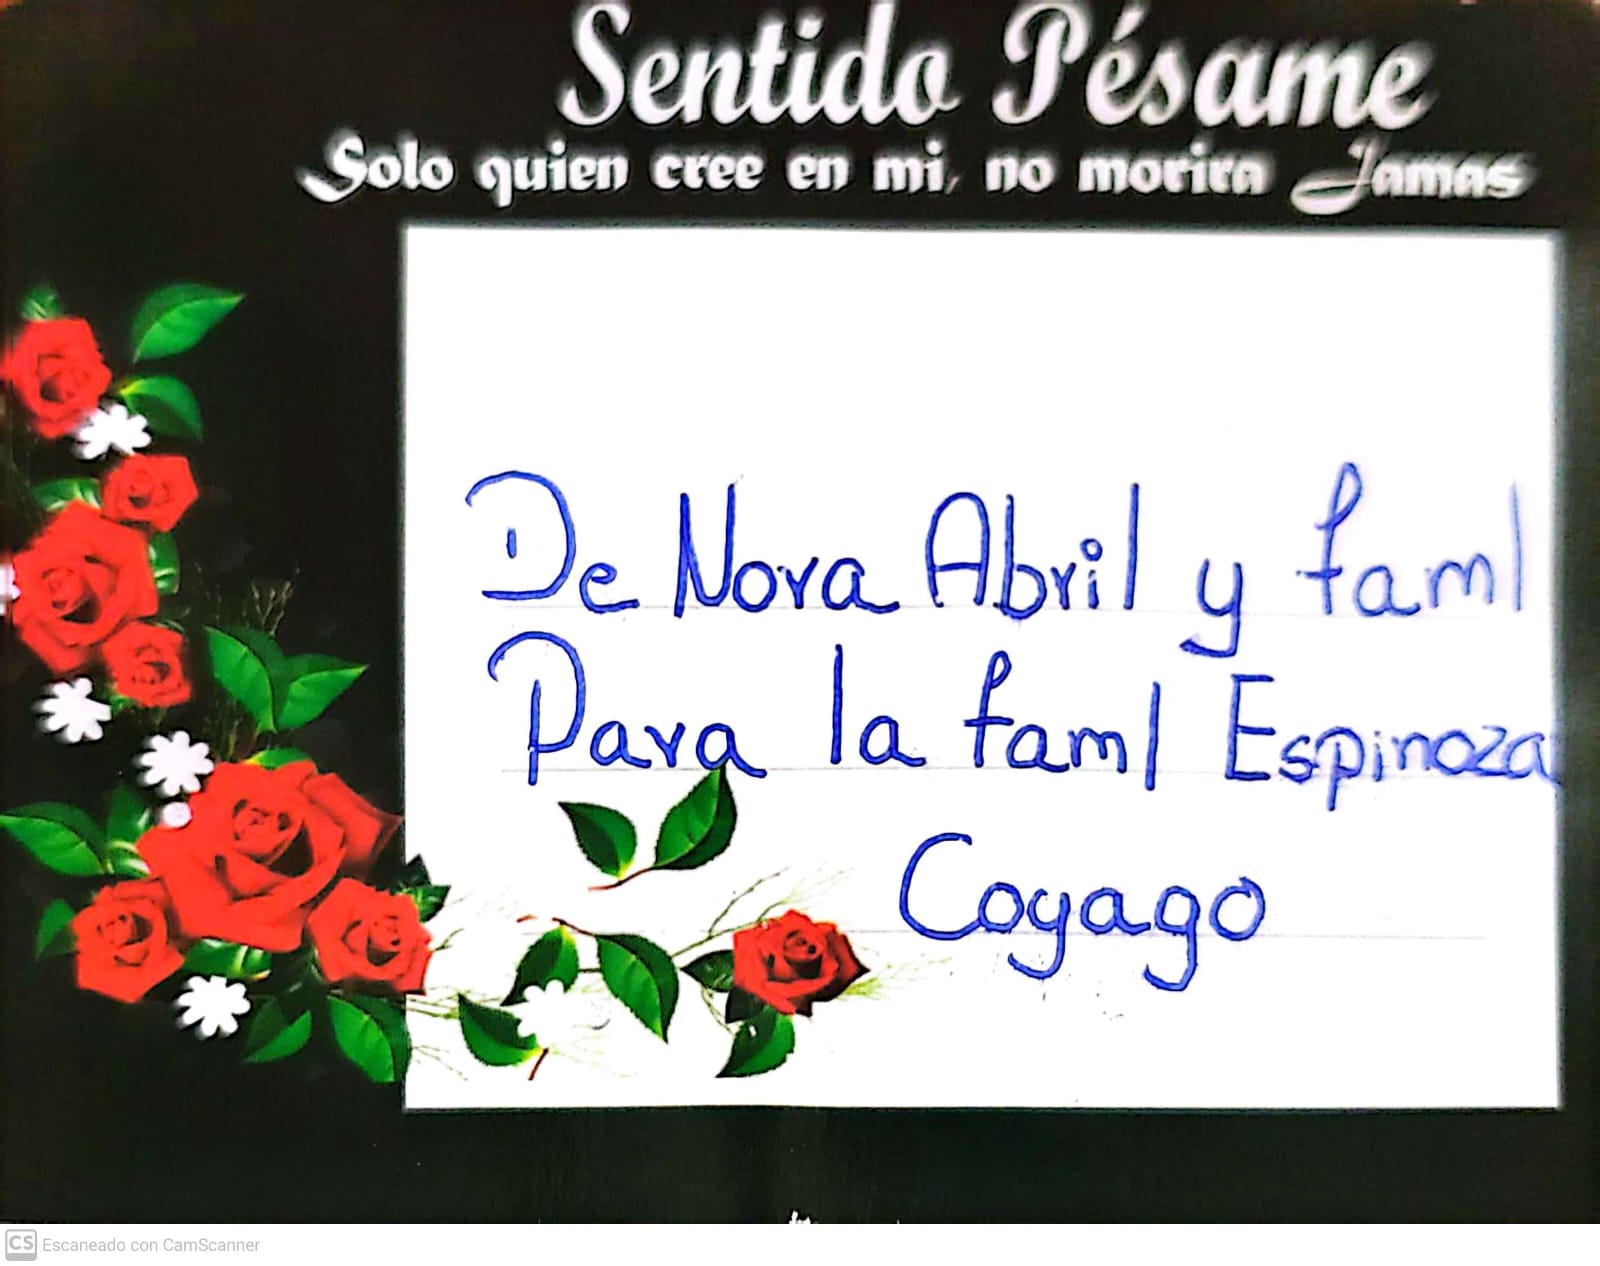 Sentido Pésame
Solo quien cree en mi, no morira Jamas
De Nora Abril y faml
Para la faml Espinoza
Coyago
CS Escaneado con CamScanner